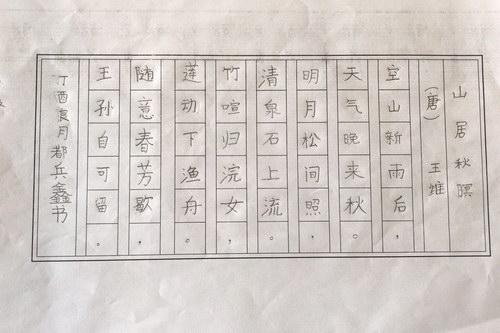 山居秋暝
（唐）王维
空山新雨后，
天气晚来秋。
明月松间照，
清泉石上流。
竹喧归浣女，
莲动下渔舟。
随意春芳歇，
王孙自可留。
丁酉月都兵鑫书